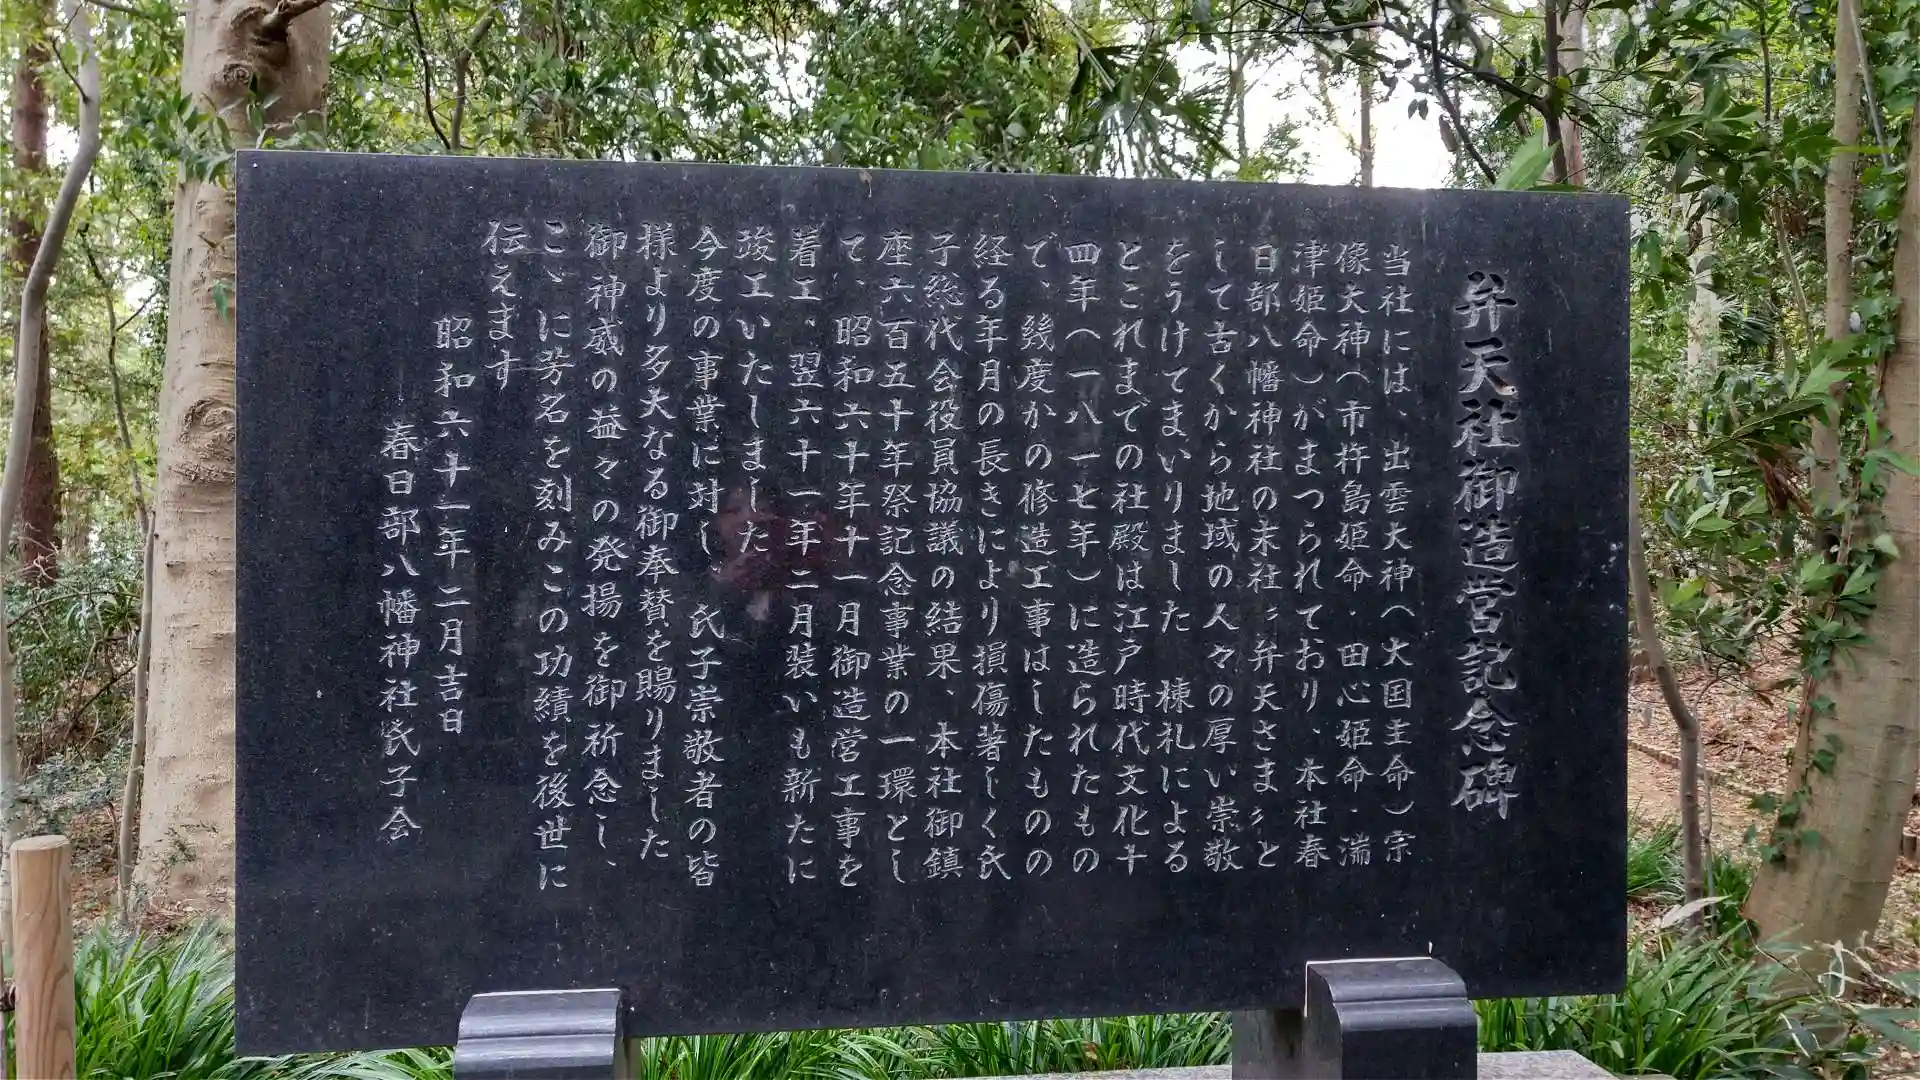 弁天社御造営記念碑
当社には、出雲大神（大国主命）宗
像大神（市杵島姫命・田心姫命・湍
津姫命）がまつられており、本社春
日部八幡神社の末社〝弁天さま〟と
して古くから地域の人々の厚い崇敬
をうけてまいりました　棟札による
とこれまでの社殿は江戸時代文化十
四年（一八一七年）に造られたもの
で、幾度かの修造工事はしたものの
経る年月の長きにより損傷著しく氏
子総代会役員協議の結果、本社御鎮
座六百五十年祭記念事業の一環とし
て、昭和六十年十一月御造営工事を
着工、翌六十一年二月装いも新たに
竣工いたしました
今度の事業に対し、氏子崇敬者の皆
様より多大なる御奉賛を賜りました
御神威の益々の発揚を御祈念し、
こゝに芳名を刻みこの功績を後世に
伝えます
昭和六十一年二月吉日
春日部八幡神社氏子会